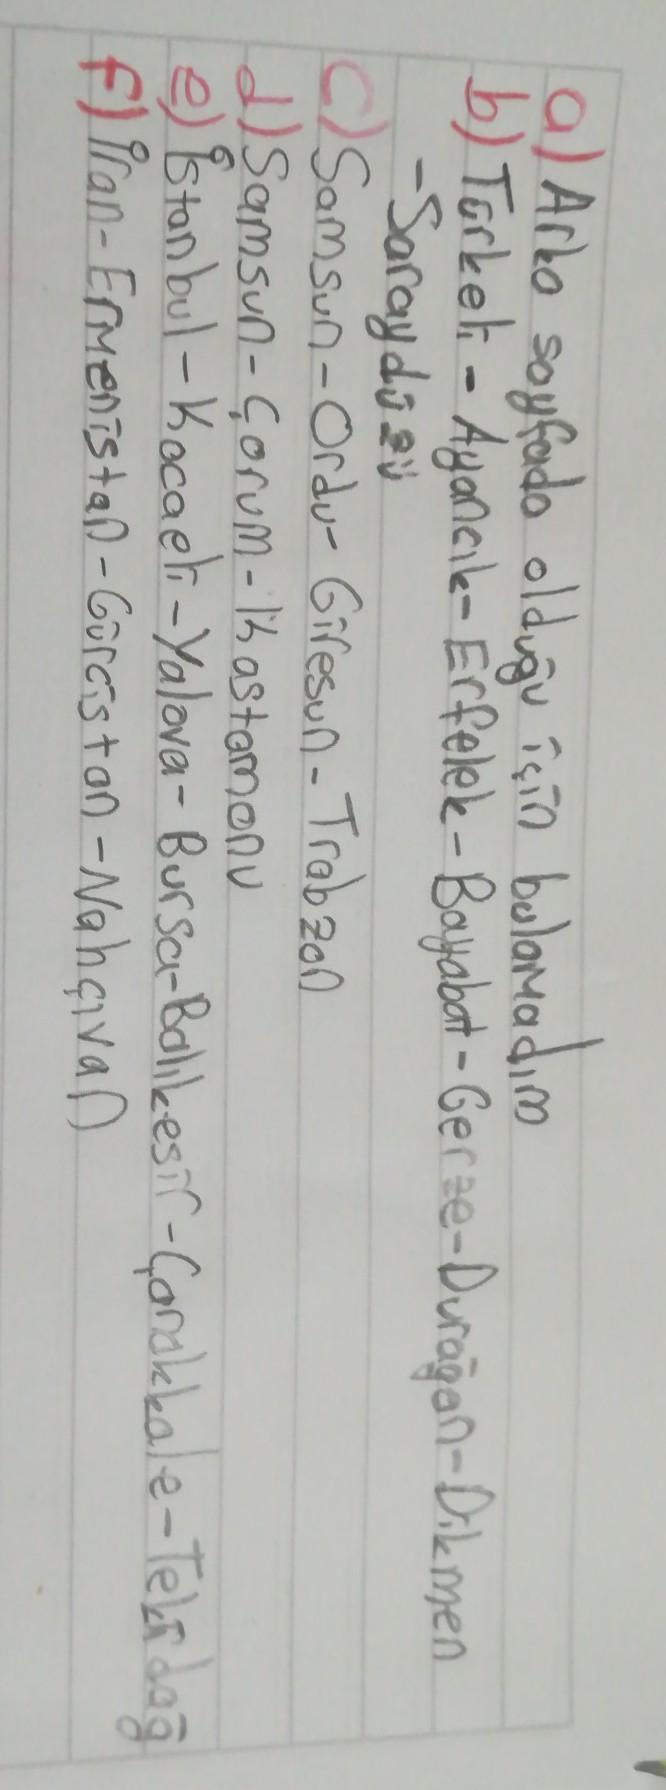 a) Arka sayfada olduğu için bulamadım
b) Türkeli - Ayancık - Erfelek - Boyabat - Gerze - Durağan - Dikmen
- Saraydüzü
c) Samsun - Ordu - Giresun - Trabzon
d) Samsun - Çorum - Kastamonu
e) İstanbul - Kocaeli - Yalova - Bursa - Balıkesir - Çanakkale - Tekirdağ
f) İran - Ermenistan - Gürcistan - Nahçıvan